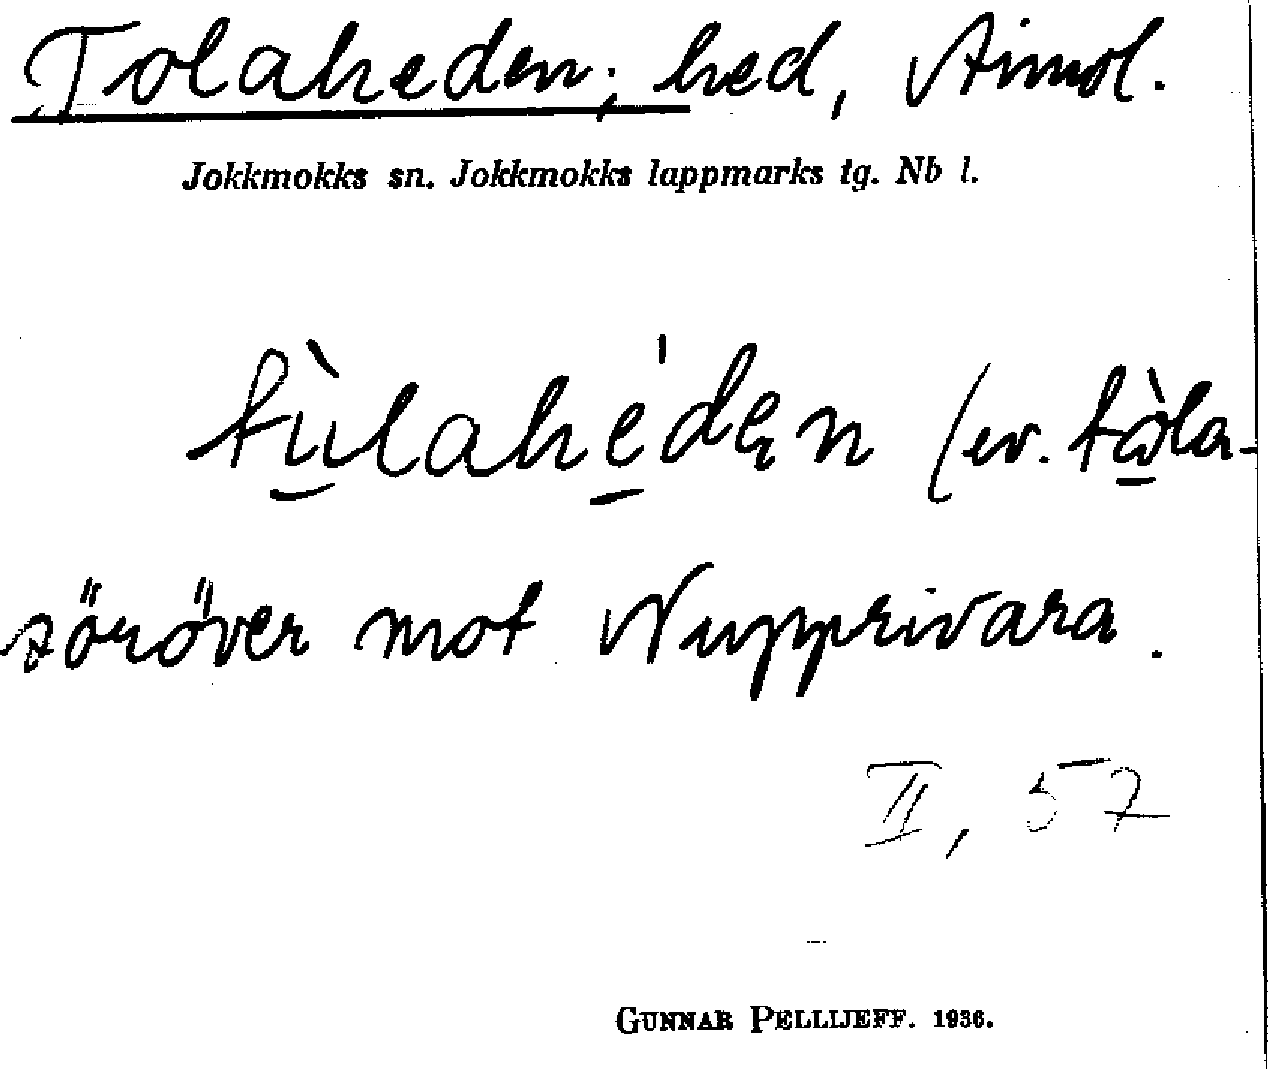 Tolaheden; hed, Aimol.
Jokkmokks sn. Jokkmokks lappmarks tg. Nb l.
tù̲lahe̲'dən (ev. tὼ̲la-
söröver mot Nupprivara.
II, 57
GUNNAR PELLIJEFF. 1936.